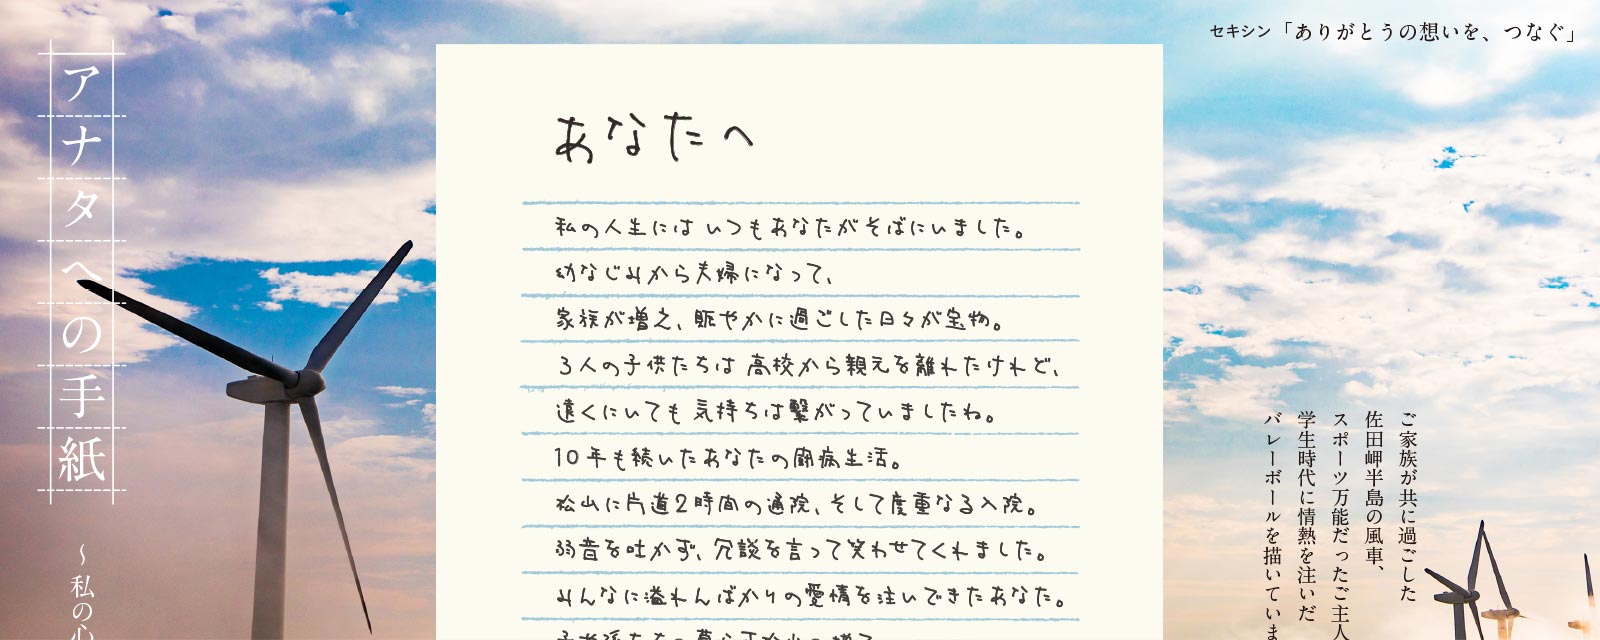 セキシン「ありがとうの想いを、つなぐ」
アナタへの手紙
～私の心
あなたへ
私の人生には いつもあなたがそばにいました。
幼なじみから夫婦になって、
家族が増え、賑やかに過ごした日々が宝物。
3人の子供たちは 高校から親元を離れたけれど、
遠くにいても 気持ちは繋がっていましたね。
10年も続いたあなたの闘病生活。
松山に片道2時間の通院、そして度重なる入院。
弱音を吐かず、冗談を言って笑わせてくれました。
みんなに溢れんばかりの愛情を注いできたあなた。
ご家族が共に過ごした
佐田岬半島の風車、
スポーツ万能だったご主人
学生時代に情熱を注いだ
バレーボールを描いていま